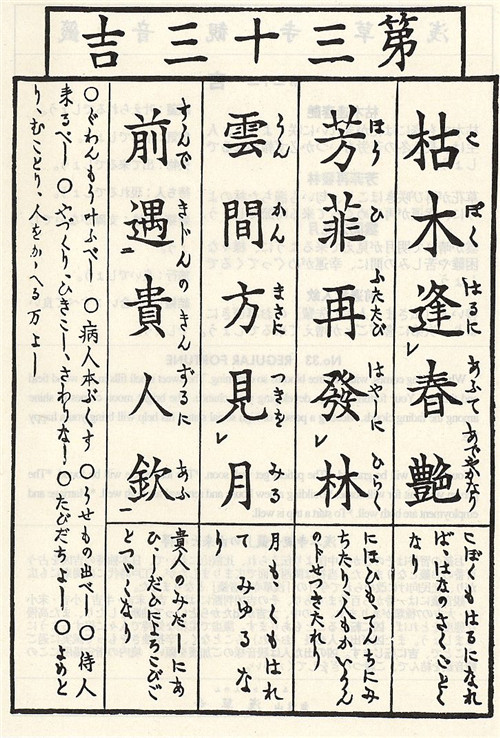 第三十三吉
枯木逢春艶
こぼくはるにあふてあでやかなり
こぼくもはるになれ
ば、はなのさくごとく
なり
芳菲再發林
はうひふたたびはやしにひらく
にほひもてんちにみ
ちたり、人もかいうん
のトせつきたれり
雲間方見月
うんかんまさにつきをみる
月もくもはれ
てみゆるな
り
前遇貴人欽
すんできじんのきんずるにあふ
貴人のみだしにあ
ひ、だびにたちこびご
とつどなし
〇ぐわんもう叶ふべし 〇病人本ぷくす 〇うせもの出べし 〇待人
来るべし 〇やづくり、ひきこし、さわりなし 〇たびだちよし 〇よめと
り、むことり、人をかゝへる万よし